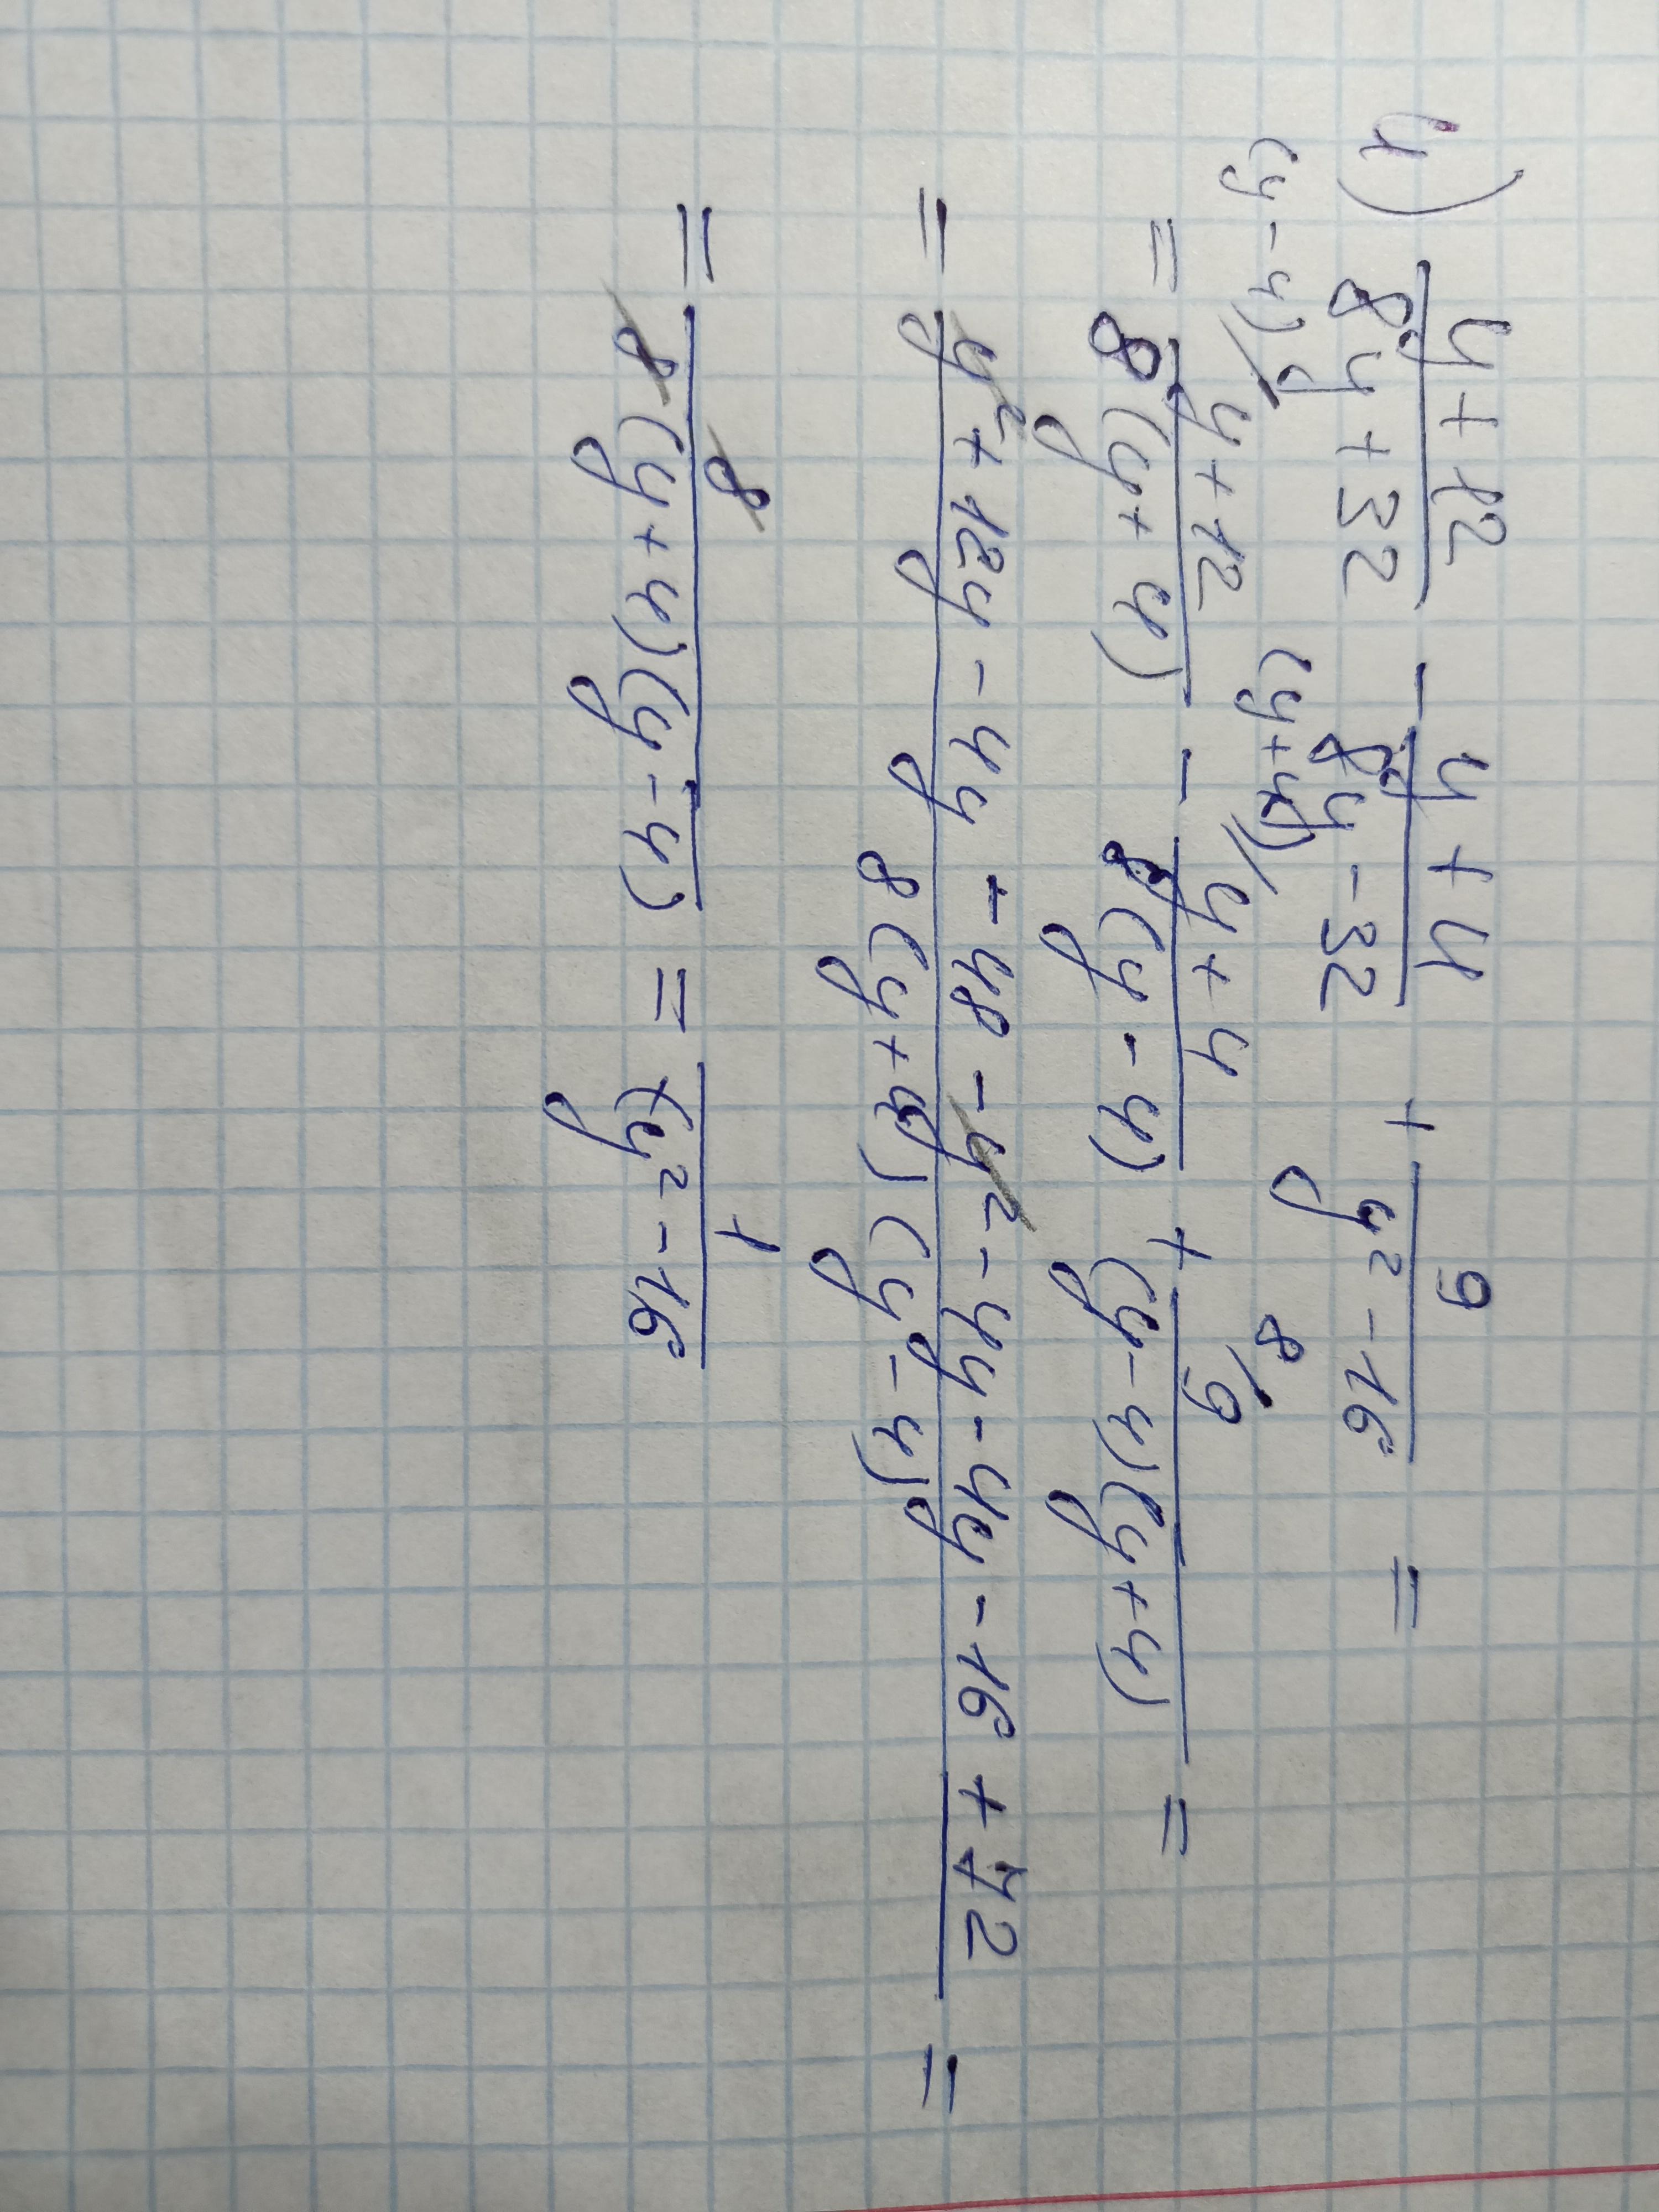 4) (y+12)/(8y+32) - (y+4)/(8y-32) + 9/(y²-16) =
= (y-4)/ (y+12)/(8(y+4)) - (y+4)/ (y+4)/(8(y-4)) + 8/ 9/((y-4)(y+4)) =
= (y²+12y-4y-48-y²-4y-4y-16+72)/(8(y+4)(y-4)) =
= 8/(8(y+4)(y-4)) = 1/(y²-16)